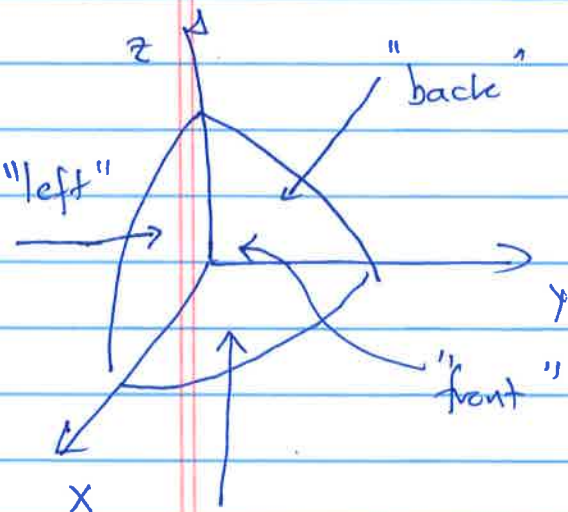 z
"back"
"left"
y
"front"
x